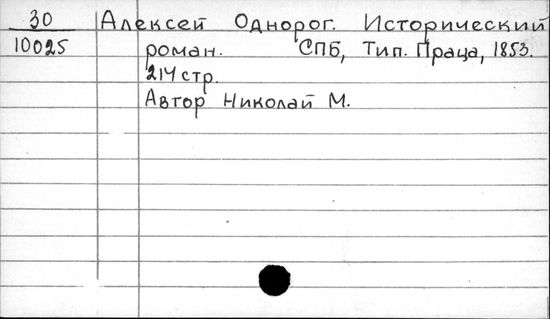 30 Алексей Однорог. Исторический
10025 роман. СПБ, Тип. Праца, 1853.
214 стр.
Автор Николай М.